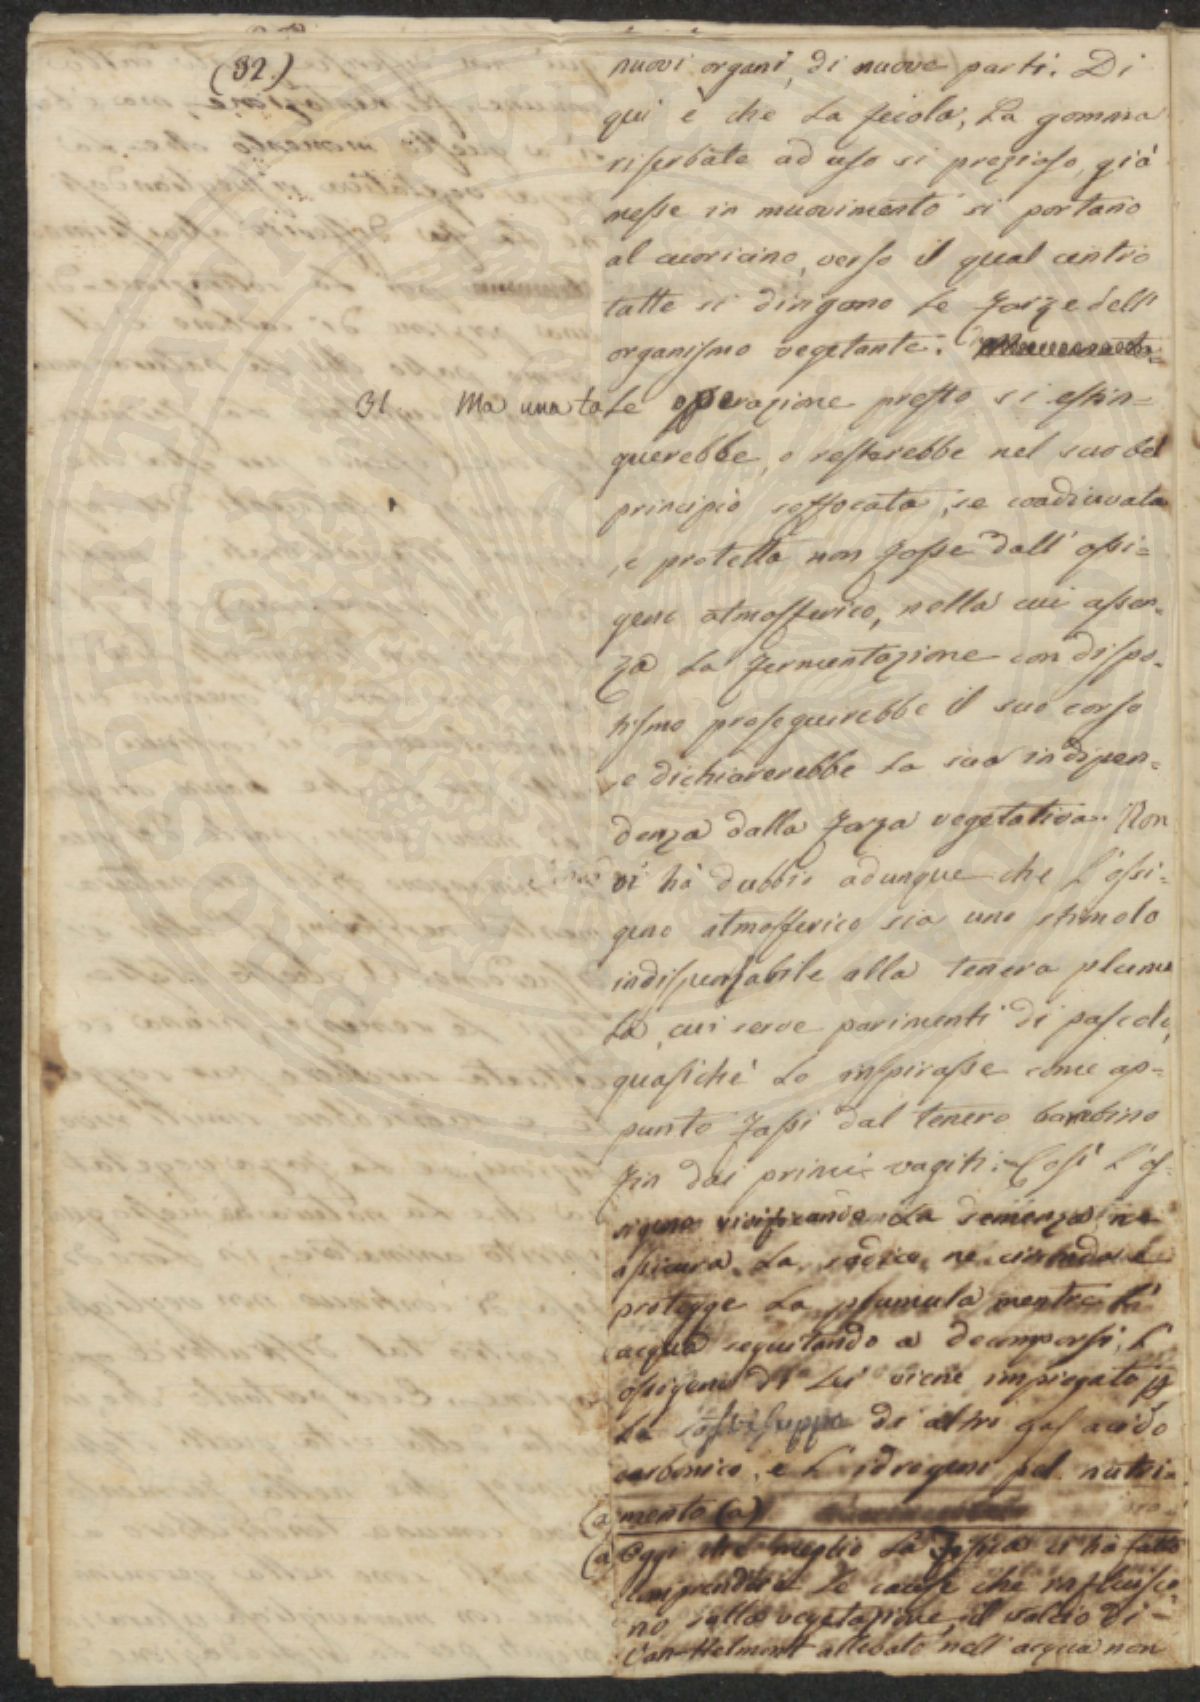 (32.)
nuovi organi, di nuove parti. Di
qui è che la fecola, la gomma
riserbate ad uso si prezioso, già
messe in muovimento si portano
al cuoricino, verso il qual centro
tutte si dirigono le forze dell'
organismo vegetante.
31 Ma una tale operazione presto si estin=
guerebbe, o resterebbe nel suo bel
principio soffocata, se coadiuvata
e protetta non fosse dall' ossi=
geno atmosferico, nella cui assen=
za la fermentazione con dispo=
tismo proseguirebbe il suo corso
e dichiarerebbe la sua indipen=
denza dalla forza vegetativa. Non
vi hà dubbio adunque che l'ossi=
geno atmosferico sia uno stimolo
indispensabile alla tenera plumu
la, cui serve parimenti di pascolo,
quasichè lo inspirasse come ap=
punto fassi dal tenero bambino
fin dai primi vagiti. Così l'os=
sigeno vivificando la semenza ne
assicura la radice, ne circonda e
protegge la plumula mentre l'
acqua seguitando a decomporsi, l'
ossigeno di lei viene impiegato p
lo sviluppo di altro gas acido
carbonico, e l' idrogeno pel nutri=
mento (a)
(a Oggi che meglio la fisica ci hà fatto
comprendere le cause che influisco
no sulla vegetazione, il salcio di
Van-Helmont allevato nell' acqua non